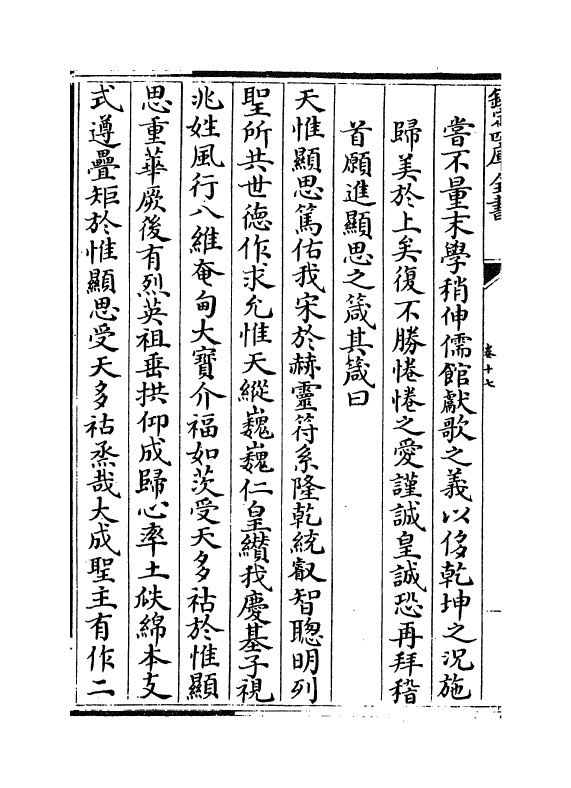 欽定四庫全書
卷十七
嘗不量末學稍伸儒館獻歌之義以侈乾坤之況施
歸美於上矣復不勝惓惓之愛謹誠皇誠恐再拜稽
首願進顯思之箴其箴曰
天惟顯思篤佑我宋於赫靈符系隆乾統叡智聰明列
聖所共世德作求允惟天縱巍巍仁皇纉我慶基子視
兆姓風行八維奄甸大寶介福如茨受天多祜於惟顯
思重華厥後有烈英祖垂拱仰成歸心率土瓞綿本支
式遵疊矩於惟顯思受天多祜烝哉大成聖主有作二